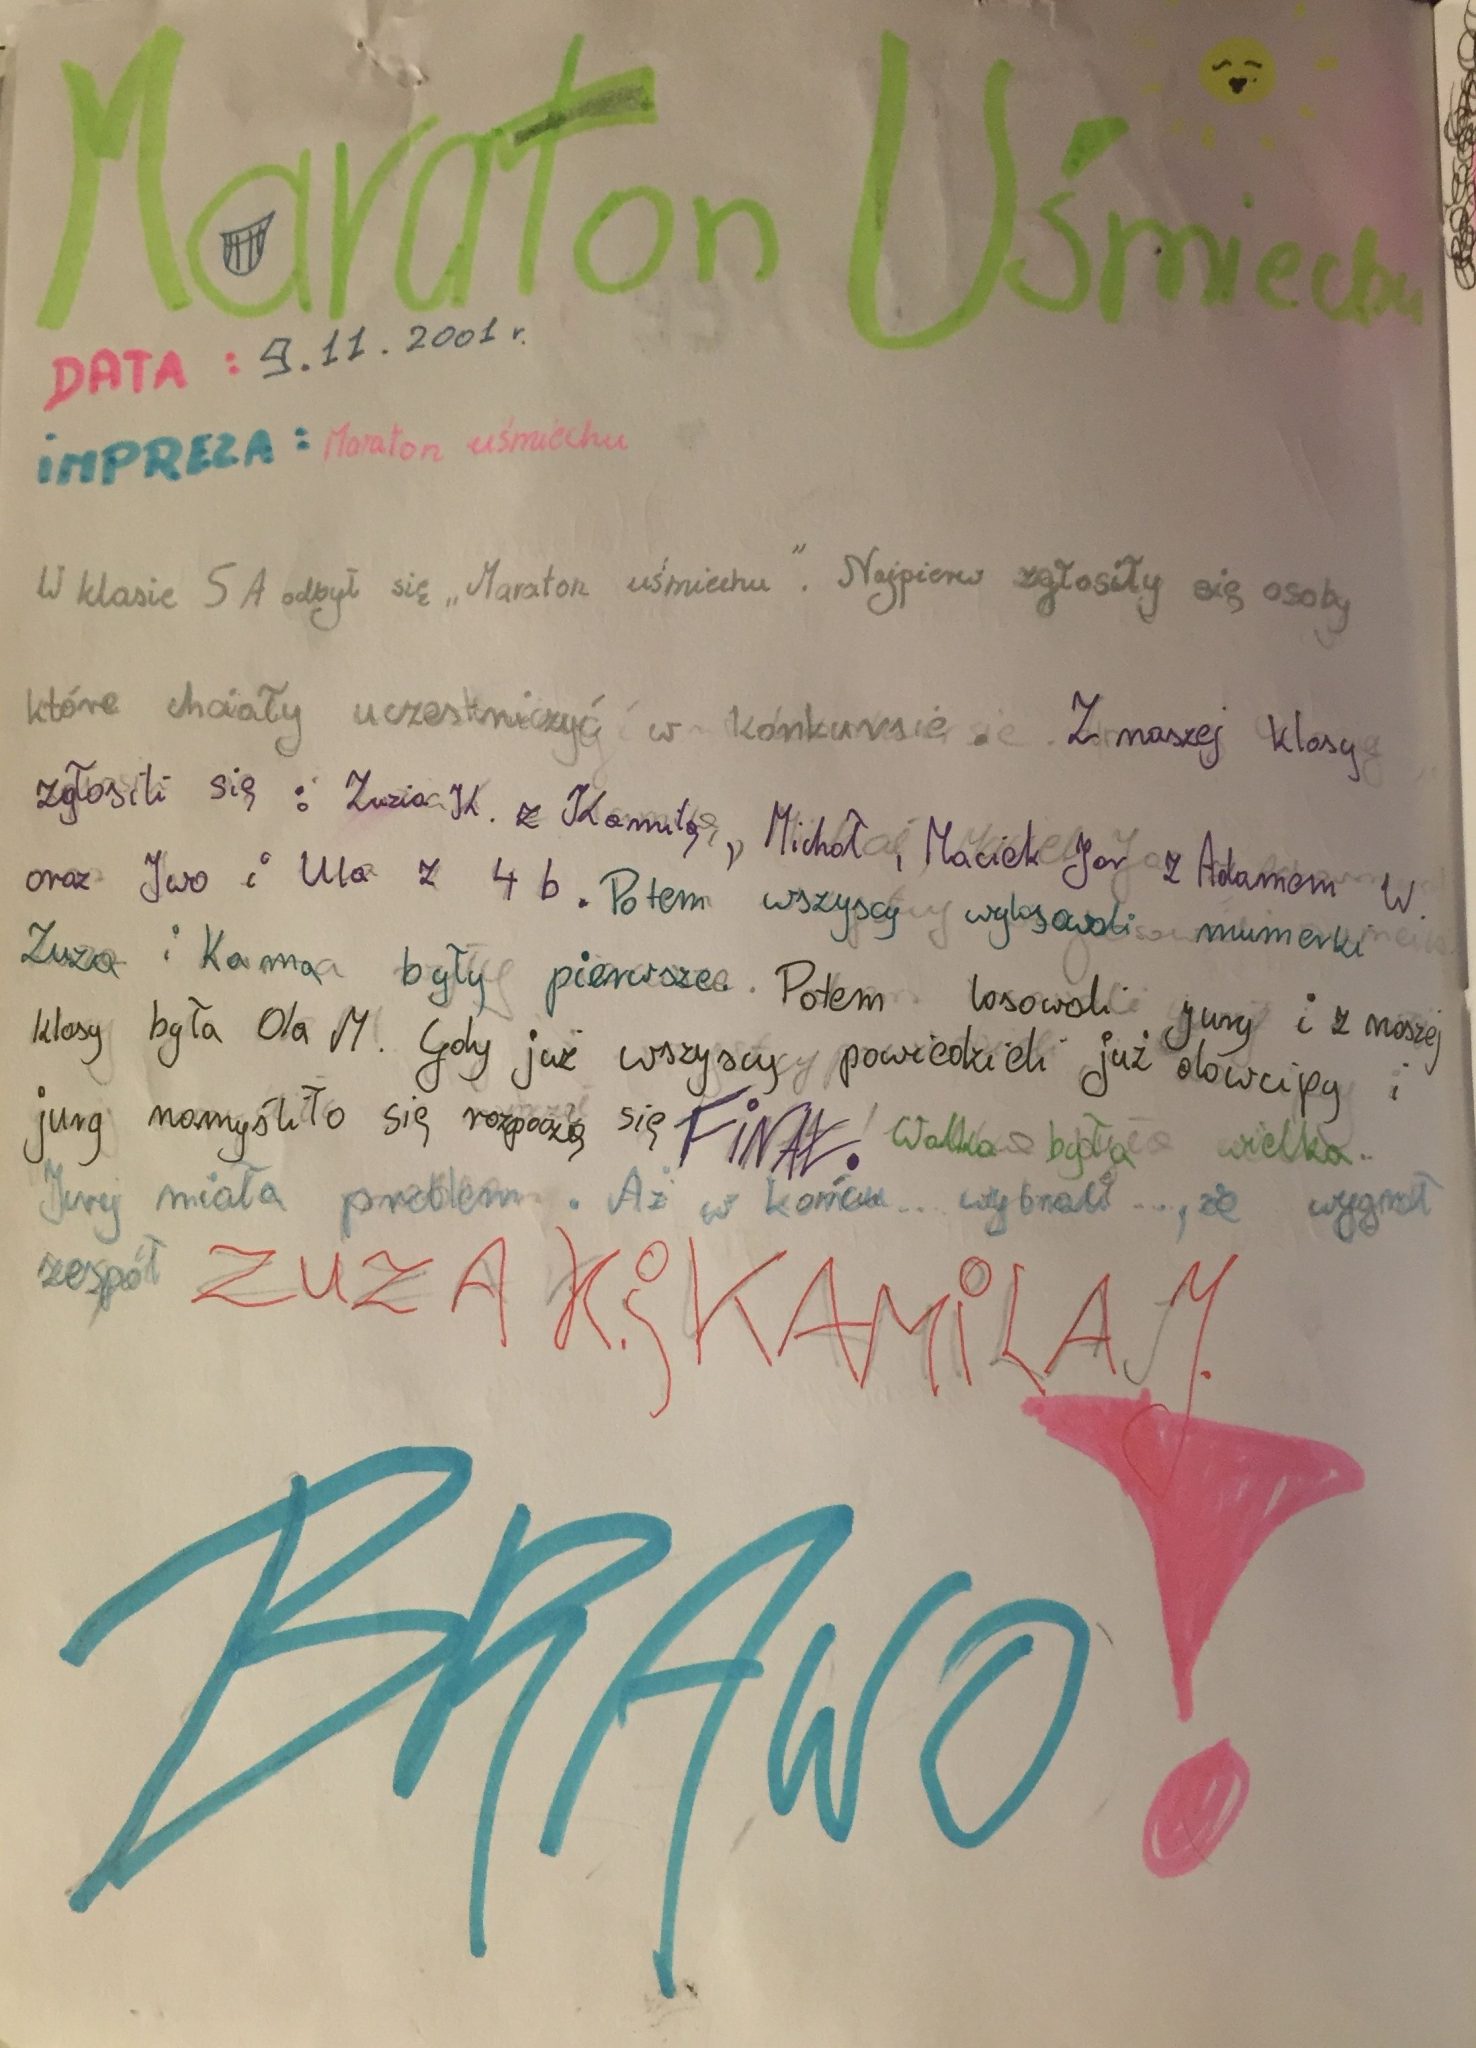 Maraton Uśmiechu
DATA : 9.11.2001 r.
iMPREZA : Maraton uśmiechu
W klasie 5 A odbył się „Maraton uśmiechu”. Najpierw zgłosiły się osoby
które chciały uczestniczyć w konkursie. Z naszej klasy
zgłosili się : Zuzia K. z Kamilą, Michał, Maciek Jar z Adamem W.
oraz Iwo i Ula z 4 b. Potem wszyscy wylosowali numerki
Zuza i Kama były pierwsze. Potem losowali jury i z naszej
klasy była Ola M. Gdy już wszyscy powiedzieli już dowcipy i
jury namyśliło się rozpoczą się FiNAŁ. Walka była wielka..
Jury miała problem. Aż w końcu... wybrali ..., że wygrał
zespół ZUZA K. i KAMiLA J.
BRAWO!